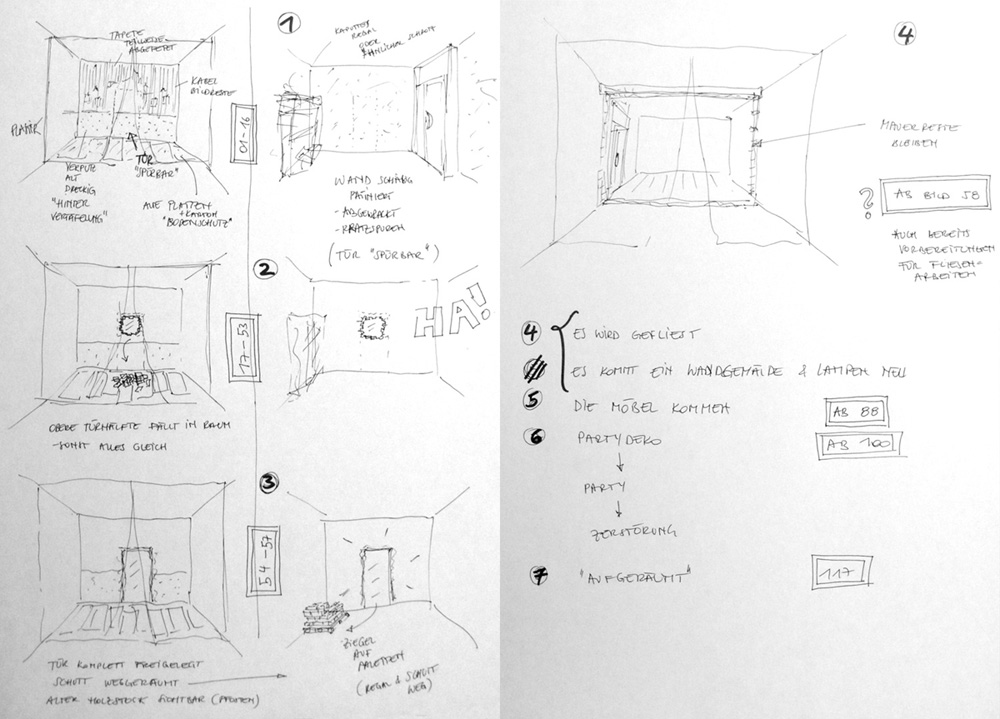 1
TAPETE
TEILWEISE
ABGEFETZT
KABEL
BILDRESTE
PLAFOND
VERPUTZ
ALT
DRECKIG
"HINTER
VERTÄFELUNG"
TÜR
"SPÜRBAR"
ALTE PLATTEN
+ KARTON
"BODENSCHUTZ"
01-16
KAPUTTES
REGAL
ODER
ÄHNLICHER SCHROTT
WAND SCHÄBIG
PATINIERT
-ABGEFUCKT
-KRATZSPUREN
(TÜR "SPÜRBAR")
2
17-53
HA!
OBERE TÜRHÄLFTE FÄLLT IN RAUM
-SONST ALLES GLEICH
3
54-57
ZIEGEL
AUF
PALETTEN
(REGAL & SCHUTT
WEG)
TÜR KOMPLETT FREIGELEGT
SCHUTT WEGGERÄUMT
ALTER HOLZSTOCK SICHTBAR (PFOSTEN)
4
MAUERRESTE
BLEIBEN
?
AB BILD 58
AUCH BEREITS
VORBEREITUNGEN
FÜR FLIESEN-
ARBEITEN
4 ES WIRD GEFLIEST
ES KOMMT EIN WANDGEMÄLDE & LAMPEN NEU
5 DIE MÖBEL KOMMEN AB 88
6 PARTYDEKO AB 100
PARTY
ZERSTÖRUNG
7 "AUFGERÄUMT" 117